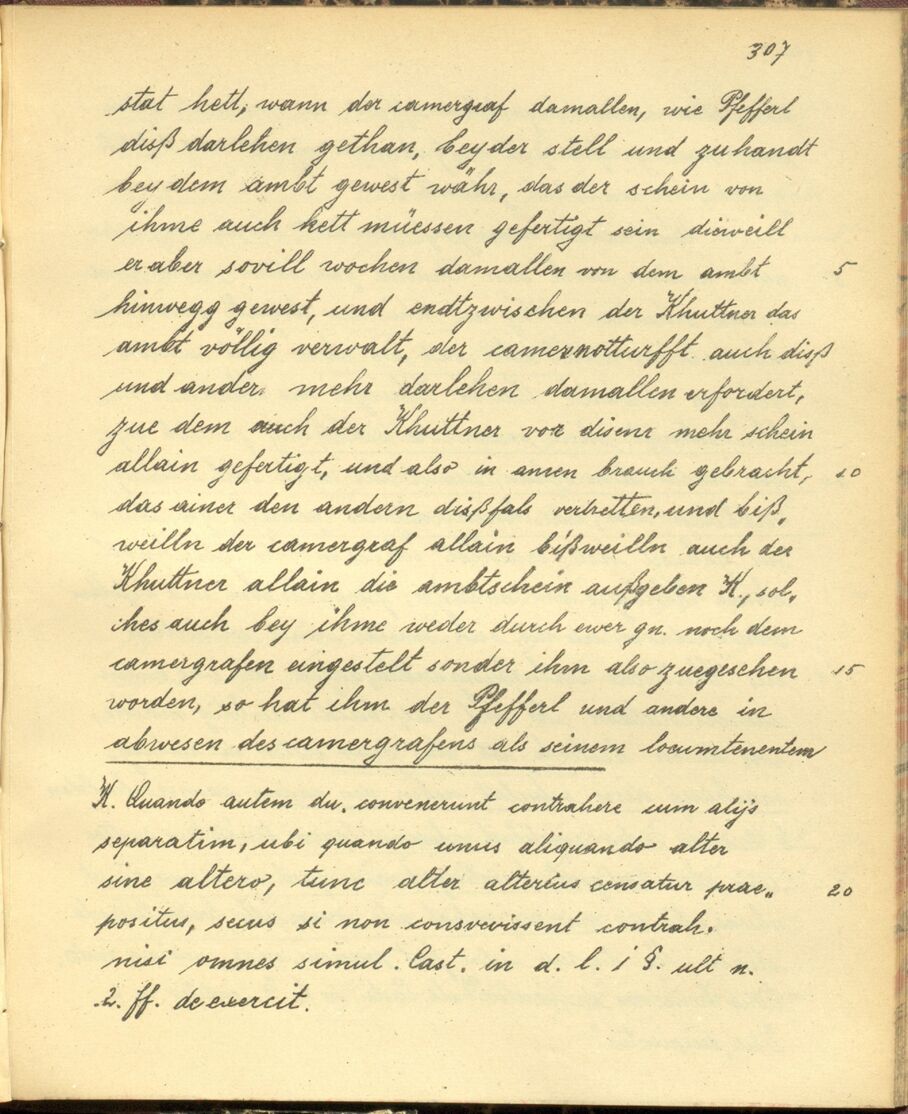 307
stat hett, wann der camergraf damallen, wie Pfefferl
disß darlehen gethan, beyder stell und zuhandt
bey dem ambt gewest währ, das der schein von
ihme auch hett müessen gefertigt sein dieweill
er aber sovill wochen damallen von dem ambt 5
hinwegg gewest, und endtzwischen der Khuttner das
ambt völlig verwalt, der camernotturfft auch disß
und ander mehr darlehen damallen erfordert,
zue dem auch der Khuttner vor disem mehr schein
allain gefertigt, und also in ainen brauch gebracht, 10
das ainer den andern disßfals vertretten, und biß„
weilln der camergraf allain bißweilln auch der
Khuttner allain die ambtschein außgeben K., sol„
ches auch bey ihme weder durch ewer gn. noch dem
camergrafen eingestelt sonder ihm also zuegesehen 15
worden, so hat ihm der Pfefferl und andere in
abwesen des camergrafens als seinem locumtenentem
K. Quando autem du. convenerunt contrahere cum alijs
separatim, ubi quando unus aliquando alter
sine altero, tunc alter alterius censatur prae„ 20
positus, secus si non consvevissent contrah.
nisi omnes simul. Cast. in d. l. i §. ult n.
.2. ff. de exercit.